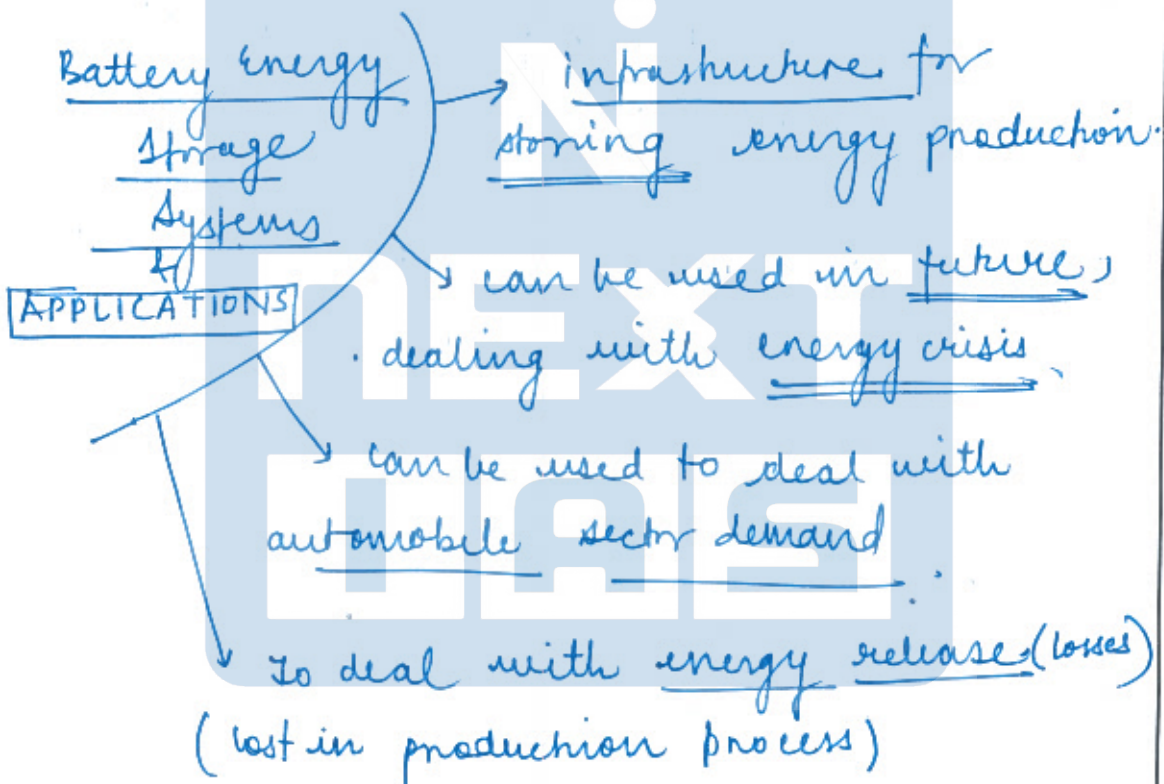 Battery Energy
Storage
Systems
&
APPLICATIONS
→ infrastructure for
storing energy production.
→ can be used in future,
. dealing with energy crisis
→ can be used to deal with
automobile sector demand
→ To deal with energy release (losses)
(lost in production process)
NEXT
IAS